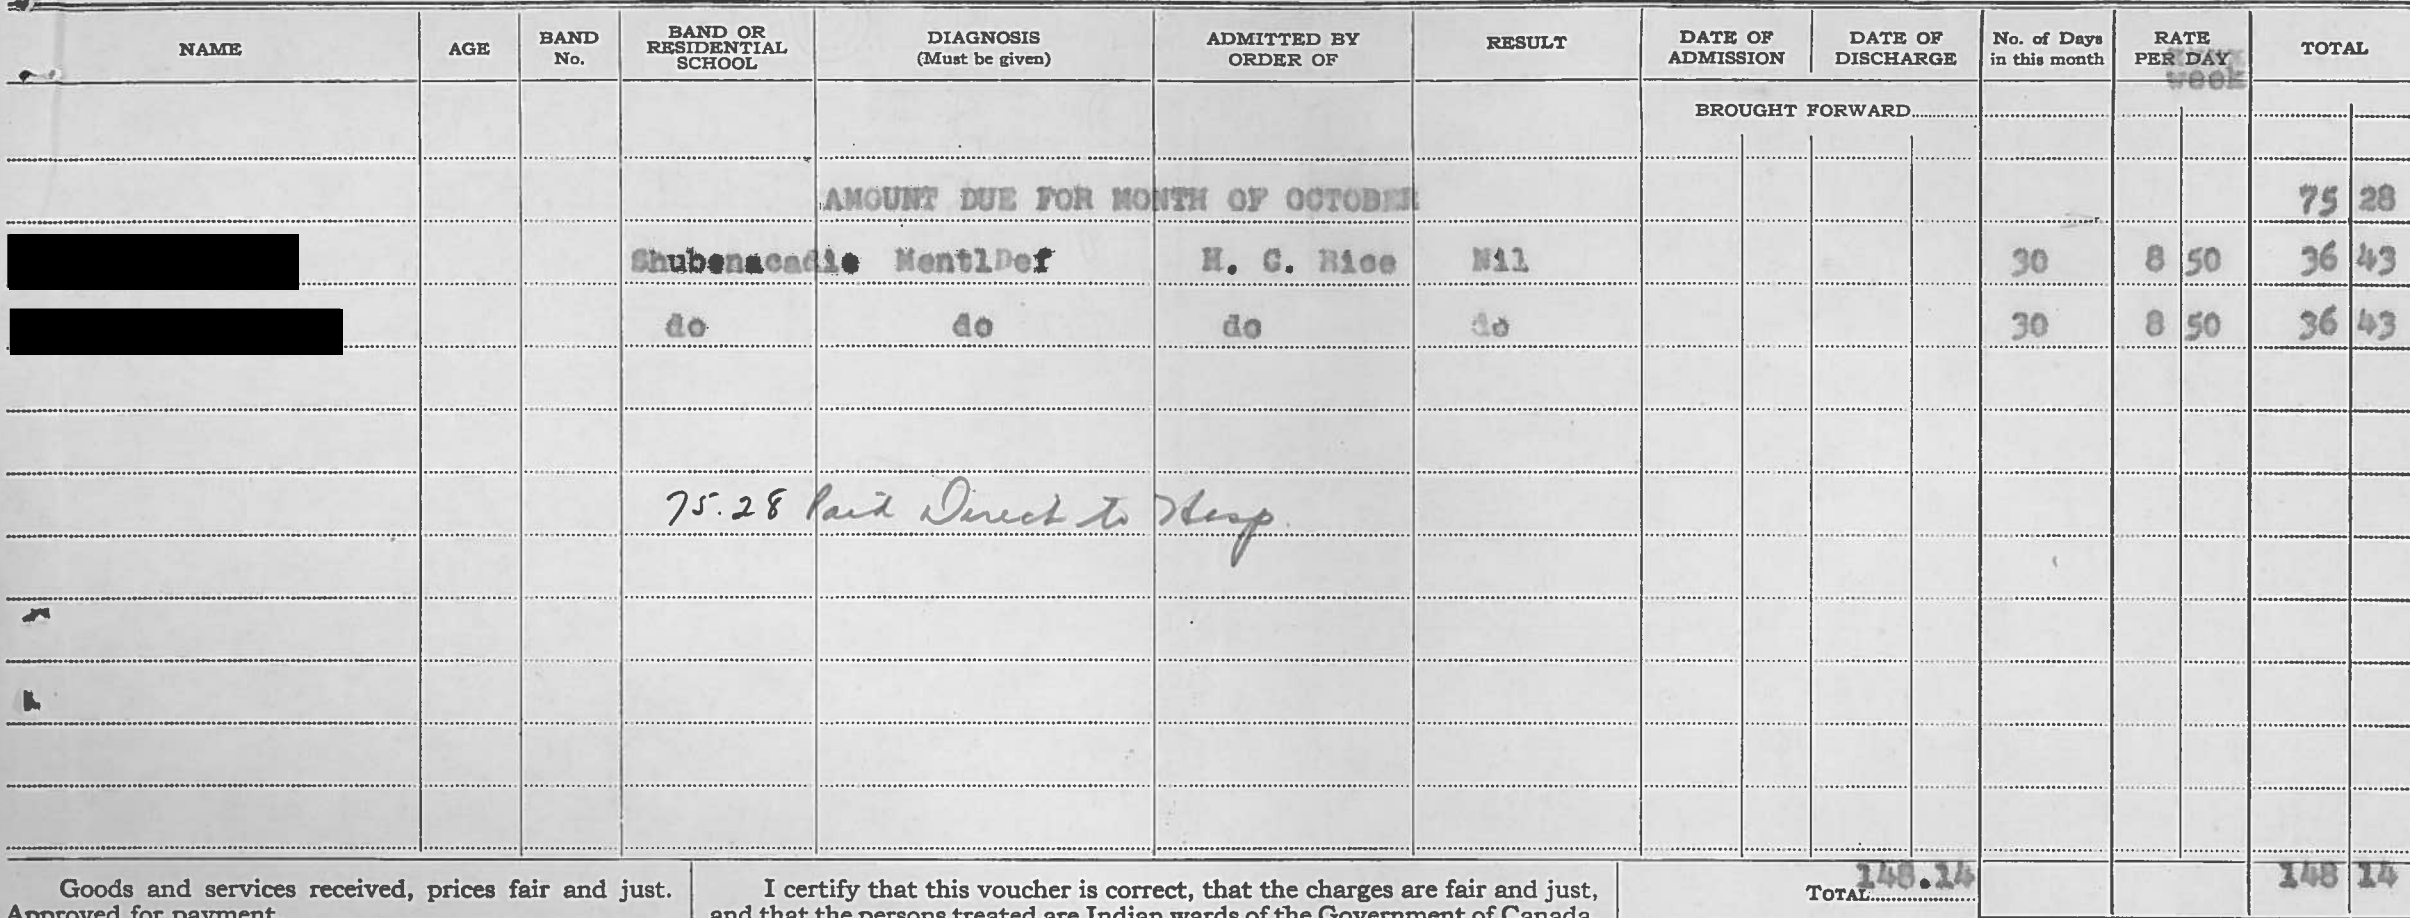 NAME AGE BAND No. BAND OR RESIDENTIAL SCHOOL DIAGNOSIS (Must be given) ADMITTED BY ORDER OF RESULT DATE OF ADMISSION DATE OF DISCHARGE No. of Days in this month RATE PER DAY week TOTAL
BROUGHT FORWARD
AMOUNT DUE FOR MONTH OF OCTOBER 75 28
Shubenacadie MentlDef H. C. Rice Nil 30 8 50 36 43
do do do do 30 8 50 36 43
75.28 Paid Direct to Hosp.
TOTAL 148.14 148 14
Goods and services received, prices fair and just. I certify that this voucher is correct, that the charges are fair and just,
Approved for payment and that the persons treated are Indian wards of the Government of Canada